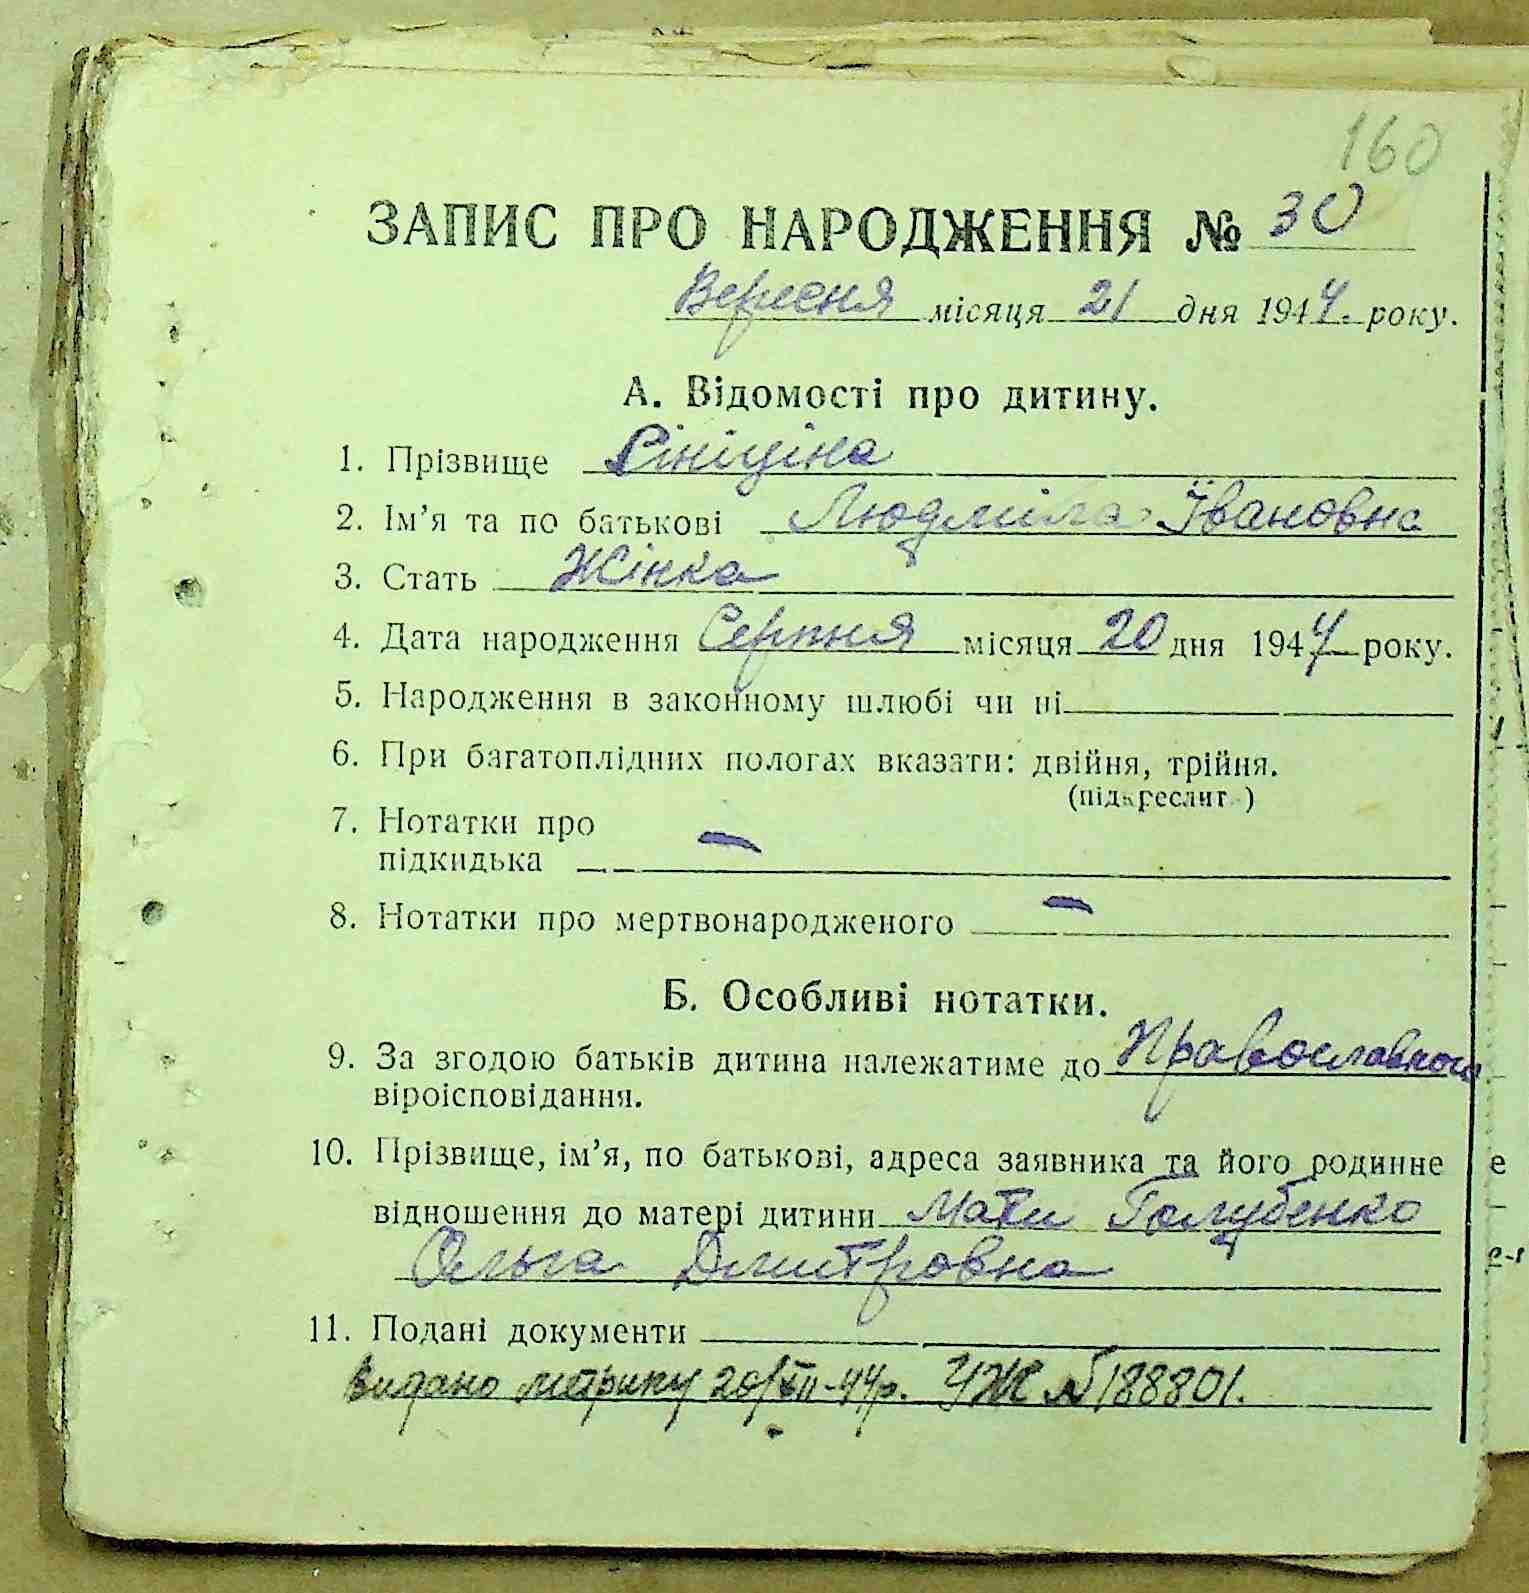 160
ЗАПИС ПРО НАРОДЖЕННЯ № 30
Вересня місяця 21 дня 1944. року.
А. Відомості про дитину.
1. Прізвище Сініціна
2. Ім'я та по батькові Людміла Івановна
3. Стать Жінка
4. Дата народження Серпня місяця 20 дня 1944 року.
5. Народження в законному шлюбі чи ні
6. При багатоплідних пологах вказати: двійня, трійня.
(підкреслит )
7. Нотатки про
підкидька –
8. Нотатки про мертвонародженого –
Б. Особливі нотатки.
9. За згодою батьків дитина належатиме до Православного
віроісповідання.
10. Прізвище, ім'я, по батькові, адреса заявника та його родинне
відношення до матері дитини Мати Голубенко
Ольга Дмитровна
11. Подані документи
Видано метрику 20/XII-44р. УЖ № 188801.